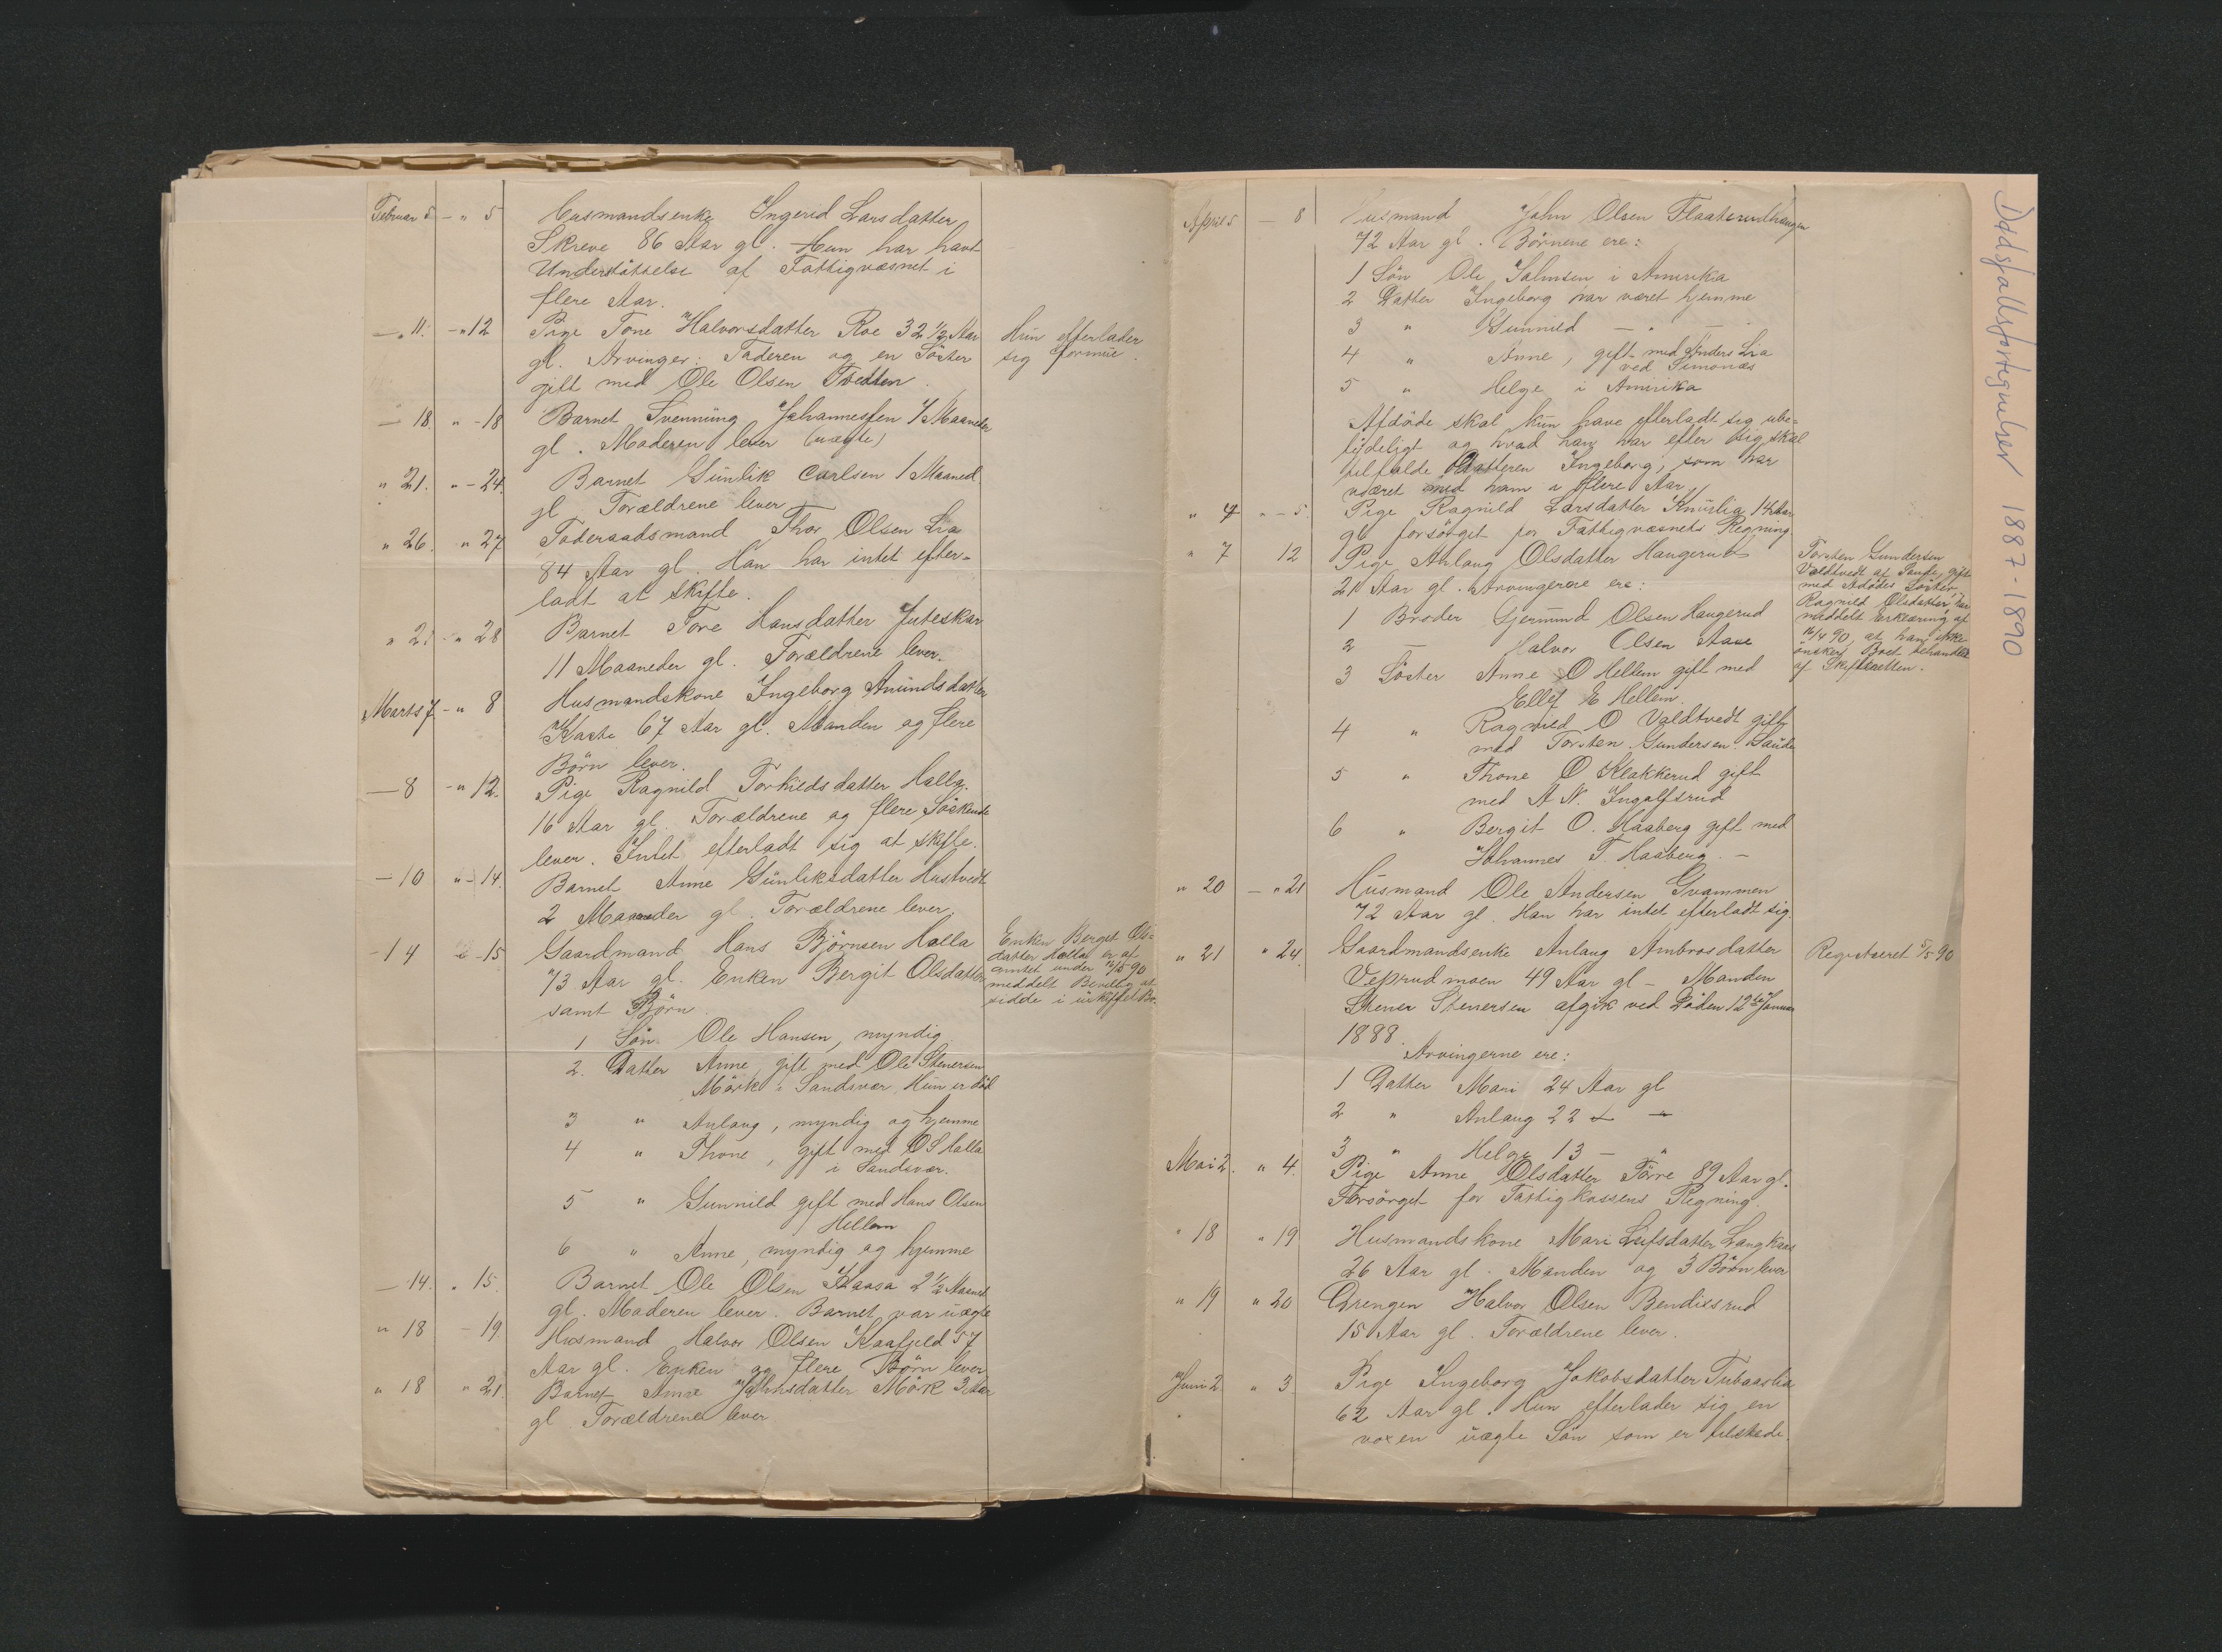 Februar 5 - " 5 Husmandsenke Ingerid Larsdatter
Skreve 86 Aar gl. Hun har havt
Understöttelse af Fattigvæsnet i
flere Aar.
- " 11. - " 12 Pige Tone Halvorsdatter Roe 32 1/2 Aar
gl. Arvinger: Faderen og en Söster
gift med Ole Olsen Tvedten.
Hun efterlader
sig formue.
- 18. " - 18 Barnet Svenning Johannessen 7 Maaneder
gl. Moderen lever (uægte)
" 21. " - 24. Barnet Gunlik Carlsen 1 Maaned
gl. Forældrene lever
" 26. " 27 Foderaadsmand Thor Olsen Lia
84 Aar gl. Han har intet efter-
ladt at skifte.
" 2. - " 28 Barnet Tore Hansdatter Juteskar
11 Maaneder gl. Forældrene lever.
Marts 7 - " 8 Husmandskone Ingeborg Anundsdatter
Kaste 67 Aar gl. Manden og flere
Börn lever.
- 8 - " 12. Pige Ragnild Torkiedsdatter Halla.
16 Aar gl. Forældrene og flere Söskende
lever. Intet efterladt sig at skifte.
- 10 " - 14. Barnet Anne Gunliksdatter Hustvedt
2 Maaneder gl. Forældrene lever.
- 14 - 15 Gaardmand Hans Björnsen Halla
73 Aar gl. Enken Bergit Olsdatter
samt Börn
Enken Berget Ols-
datter Halla er af
amtet under 12/5 90
meddelt Bevilling at
sidde i uskiftet Bo.
1 Sön Ole Hansen, myndig
2. Datter Anne gift med Ole Stenersen
Mörk i Sandsvær. Hun er död
3 " Aslaug, myndig og hjemme
4 " Thone, gift med O S Halla
i Sandsvær.
5 " Gunnild gift med Hans Olsen
Hellem
6 " Anne, myndig og hjemme
- 14. " 15. Barnet Ole Olsen Kaasa 2 1/2 Maaned
gl. Moderen lever. Barnet var uægte
" 18 - 19 Husmand Halvor Olsen Kaafjeld 57
Aar gl. Enken og flere Börn lever
" 18 " 21. Barnet Anne Johnsdatter Mörk 3 Aar
gl. Forældrene lever
April 5 - 8 Husmand John Olsen Flaatsrudhaugen
72 Aar gl. Börnene ere:
1 Sön Ole Johnsen i Amerika
2 Datter Ingeborg har været hjemme
3 " Gunnild - " -
4 " Anne, gift med Anders Lia
ved Simonæs
5 " Helge i Amirika
Afdöde skal kun have efterladt sig ube-
tydeligt og hvad han har efter sig skal
tilfalde Datteren Ingeborg, som har
været med ham i flere Aar,
" 4 " - 5. Pige Ragnild Larsdatter Knuslia 14 Aar
gl forsörget for Fattigvæsnets Regning
" 7 12 Pige Aslaug Olsdatter Haugerud
21 Aar gl. Arvingerne ere:
1 Broder Gjermund Olsen Haugerud
2 - Halvor Olsen Aase
3 Söster Anne O Hellem gift med
Ellef E Hellem
4 " Ragnild O Valdtvedt gift
med Torsten Gundersen Saude
5 " Thone O Klakkerud gift
med A N. Ingolfsrud
6 " Bergit O. Haaberg gift med
Johannes T. Haaberg. -
Torsten Gundersen
Valdtvedt af Saude, gift
med Afdödes Söster,
Ragnild Olsdatter, har
meddelt Erklæring af
16/4 90, at han ikke
önsker Boet behandlet
af Skifteretten.
" 20 - " 21 Husmand Ole Andersen Gvammen
72 Aar gl. Han har intet efterladt sig.
" 21 " 24. Gaardmandsenke Aslaug Ambrosdatter
Veprudmoen 49 Aar gl - Manden
Stener Stenersen afgik ved Döden 12te Januar
1888.
Registreret 5/5 90
Arvingerne ere:
1 Datter Mari 24 Aar gl
2 " Aslaug 22 - -
3 " Helge 13 - "
Mai 2. " 4. Pige Anne Olsdatter Törre 89 Aar gl.
Forsörget for Fattigkassens Regning.
" 18 " 19 Husmandskone Mari Leifsdatter Langkaas
26 Aar gl. Manden og 3 Börn lever
" 19 " 20 Drengen Halvor Olsen Bendixsrud
15 Aar gl. Forældrene lever.
Juni 2 " 3 Pige Ingeborg Jakobsdatter Tubaaslia
62 Aar gl. Hun efterlader sig en
voxen uægte Sön som er tilstede.
Dödsfallsfortegnelser 1887-1890